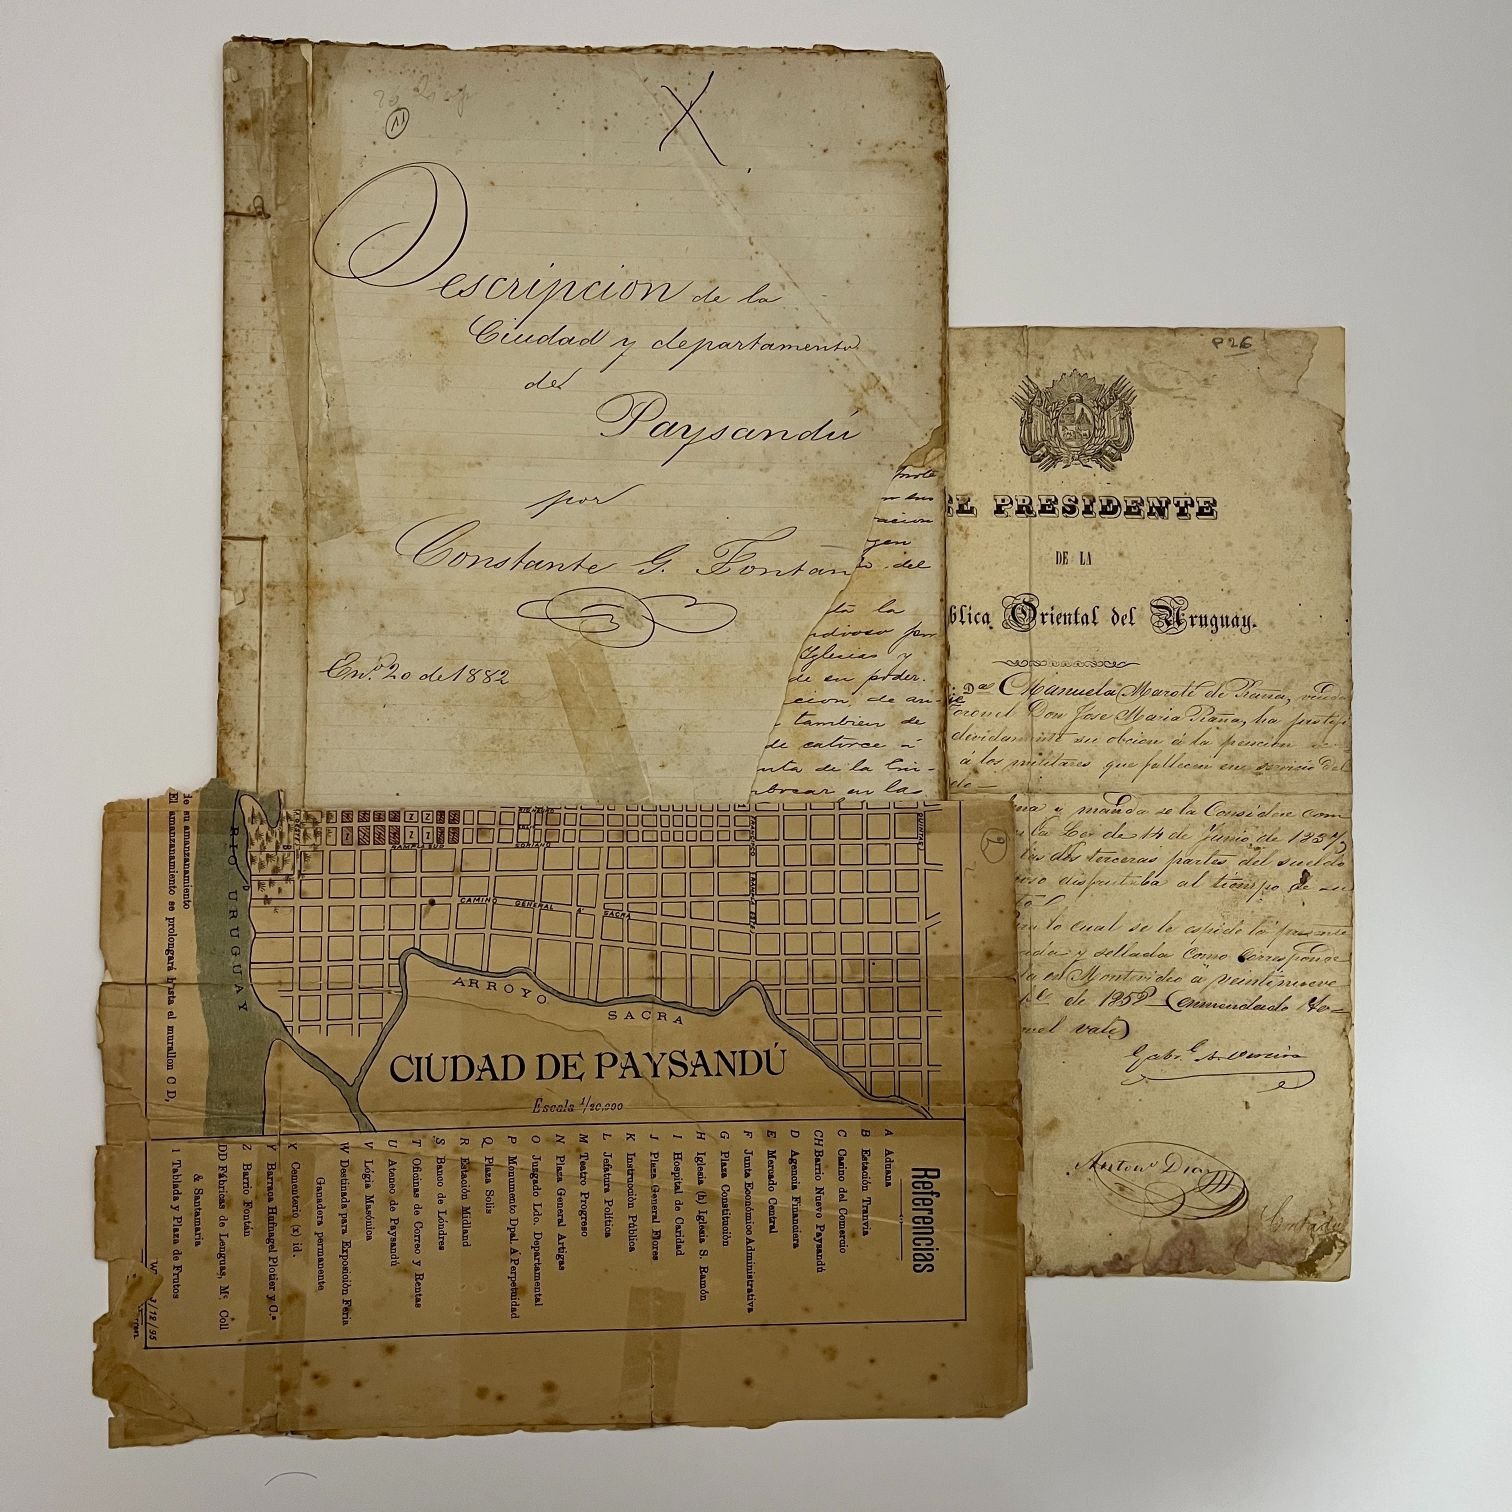 11
X
Descripcion de la
Ciudad y departamento
de
Paysandú
por
Constante G. Fontán
Enº 20 de 1882
del
da la
Iglesias y
de su poder.
cion, de an-
tambien de
de catorce á
nta de la
en las
P26
EL PRESIDENTE
DE LA
blica Oriental del Uruguay.
Dª Manuela Marote de Piana, viuda
Coronel Don José Maria Piana, ha
debidamente su obcion á la pencion
á los militares que fallecen en servicio del
do—
y manda se la Considere com
la Ley de 14 de Junio de 1853,
las dos terceras partes del sueldo
disfrutaba al tiempo de su
lo cual se le espide la presente
y sellada como corresponde
en Montevideo á veintinueve
de 1858 (enmendado Co=
nel vale)
Gabl. A. Pereira
Antonº Diaz
9
RIO URUGUAY
SORIANO
RAMPLA SUD
CAMINO GENERAL A SACRA
QUINTAS
ARROYO SACRA
CIUDAD DE PAYSANDÚ
Escala 1/20,000
de su amanzanamiento
El amanzanamiento se prolongará hasta el murallon C D,
Referencias
A Aduana
B Estación Tranvia
C Casino del Comercio
CH Barrio Nuevo Paysandú
D Agencia Financiera
E Mercado Central
F Junta Económico Administrativa
G Plaza Constitución
H Iglesia (h) Iglesia S. Ramón
I Hospital de Caridad
J Plaza General Flores
K Instrucción Pública
L Jefatura Política
M Teatro Progreso
N Plaza General Artigas
O Jusgado Ldo. Departamental
P Monumento Dpal Á Perpetuidad
Q Plaza Solis
R Estación Midland
S Banco de Lóndres
T Oficinas de Correo y Rentas
U Ateneo de Paysandú
V Lógia Masónica
W Destinada para Exposición Feria
Ganadera permanente
X Cementerio (x) id.
Y Barraca Hufnagel Plotier y C.ª
Z Barrio Fontán
DD Fábricas de Lenguas, Mc. Coll
& Santamaria
1 Tablada y Plaza de Frutos
3/12/95